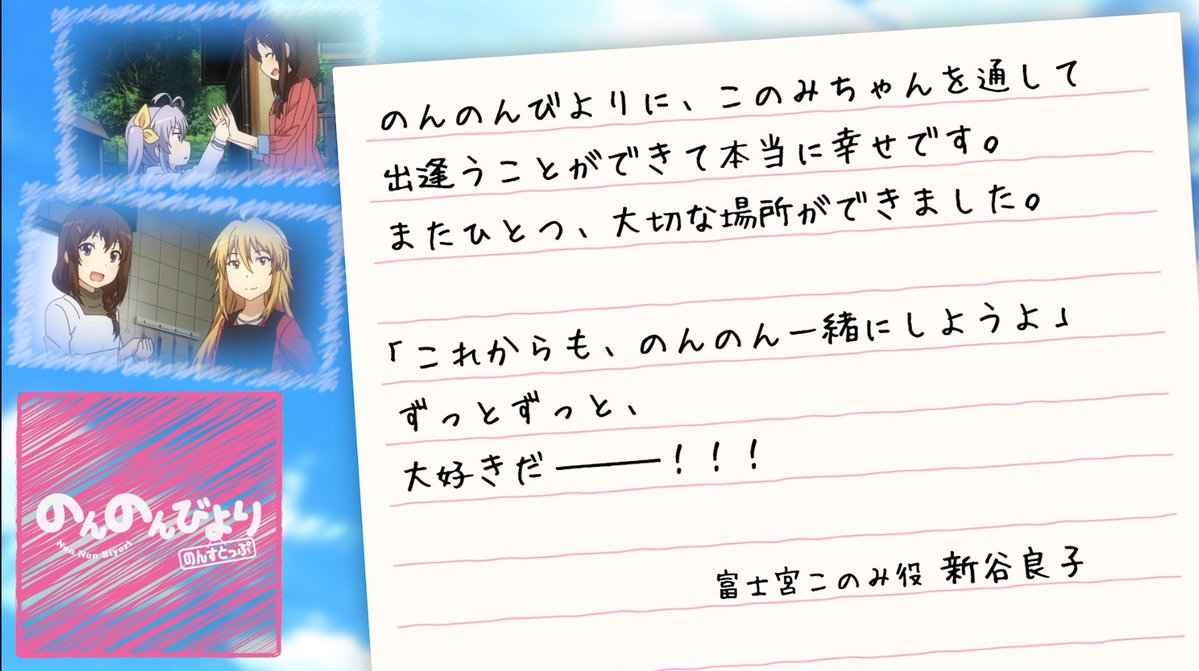 のんのんびよりに、このみちゃんを通して
出逢うことができて本当に幸せです。
またひとつ、大切な場所ができました。
「これからも、のんのん一緒にしようよ」
ずっとずっと、
大好きだ―――！！！
富士宮このみ役 新谷良子
のんのんびより
Non Non Biyori
のんすとっぷ